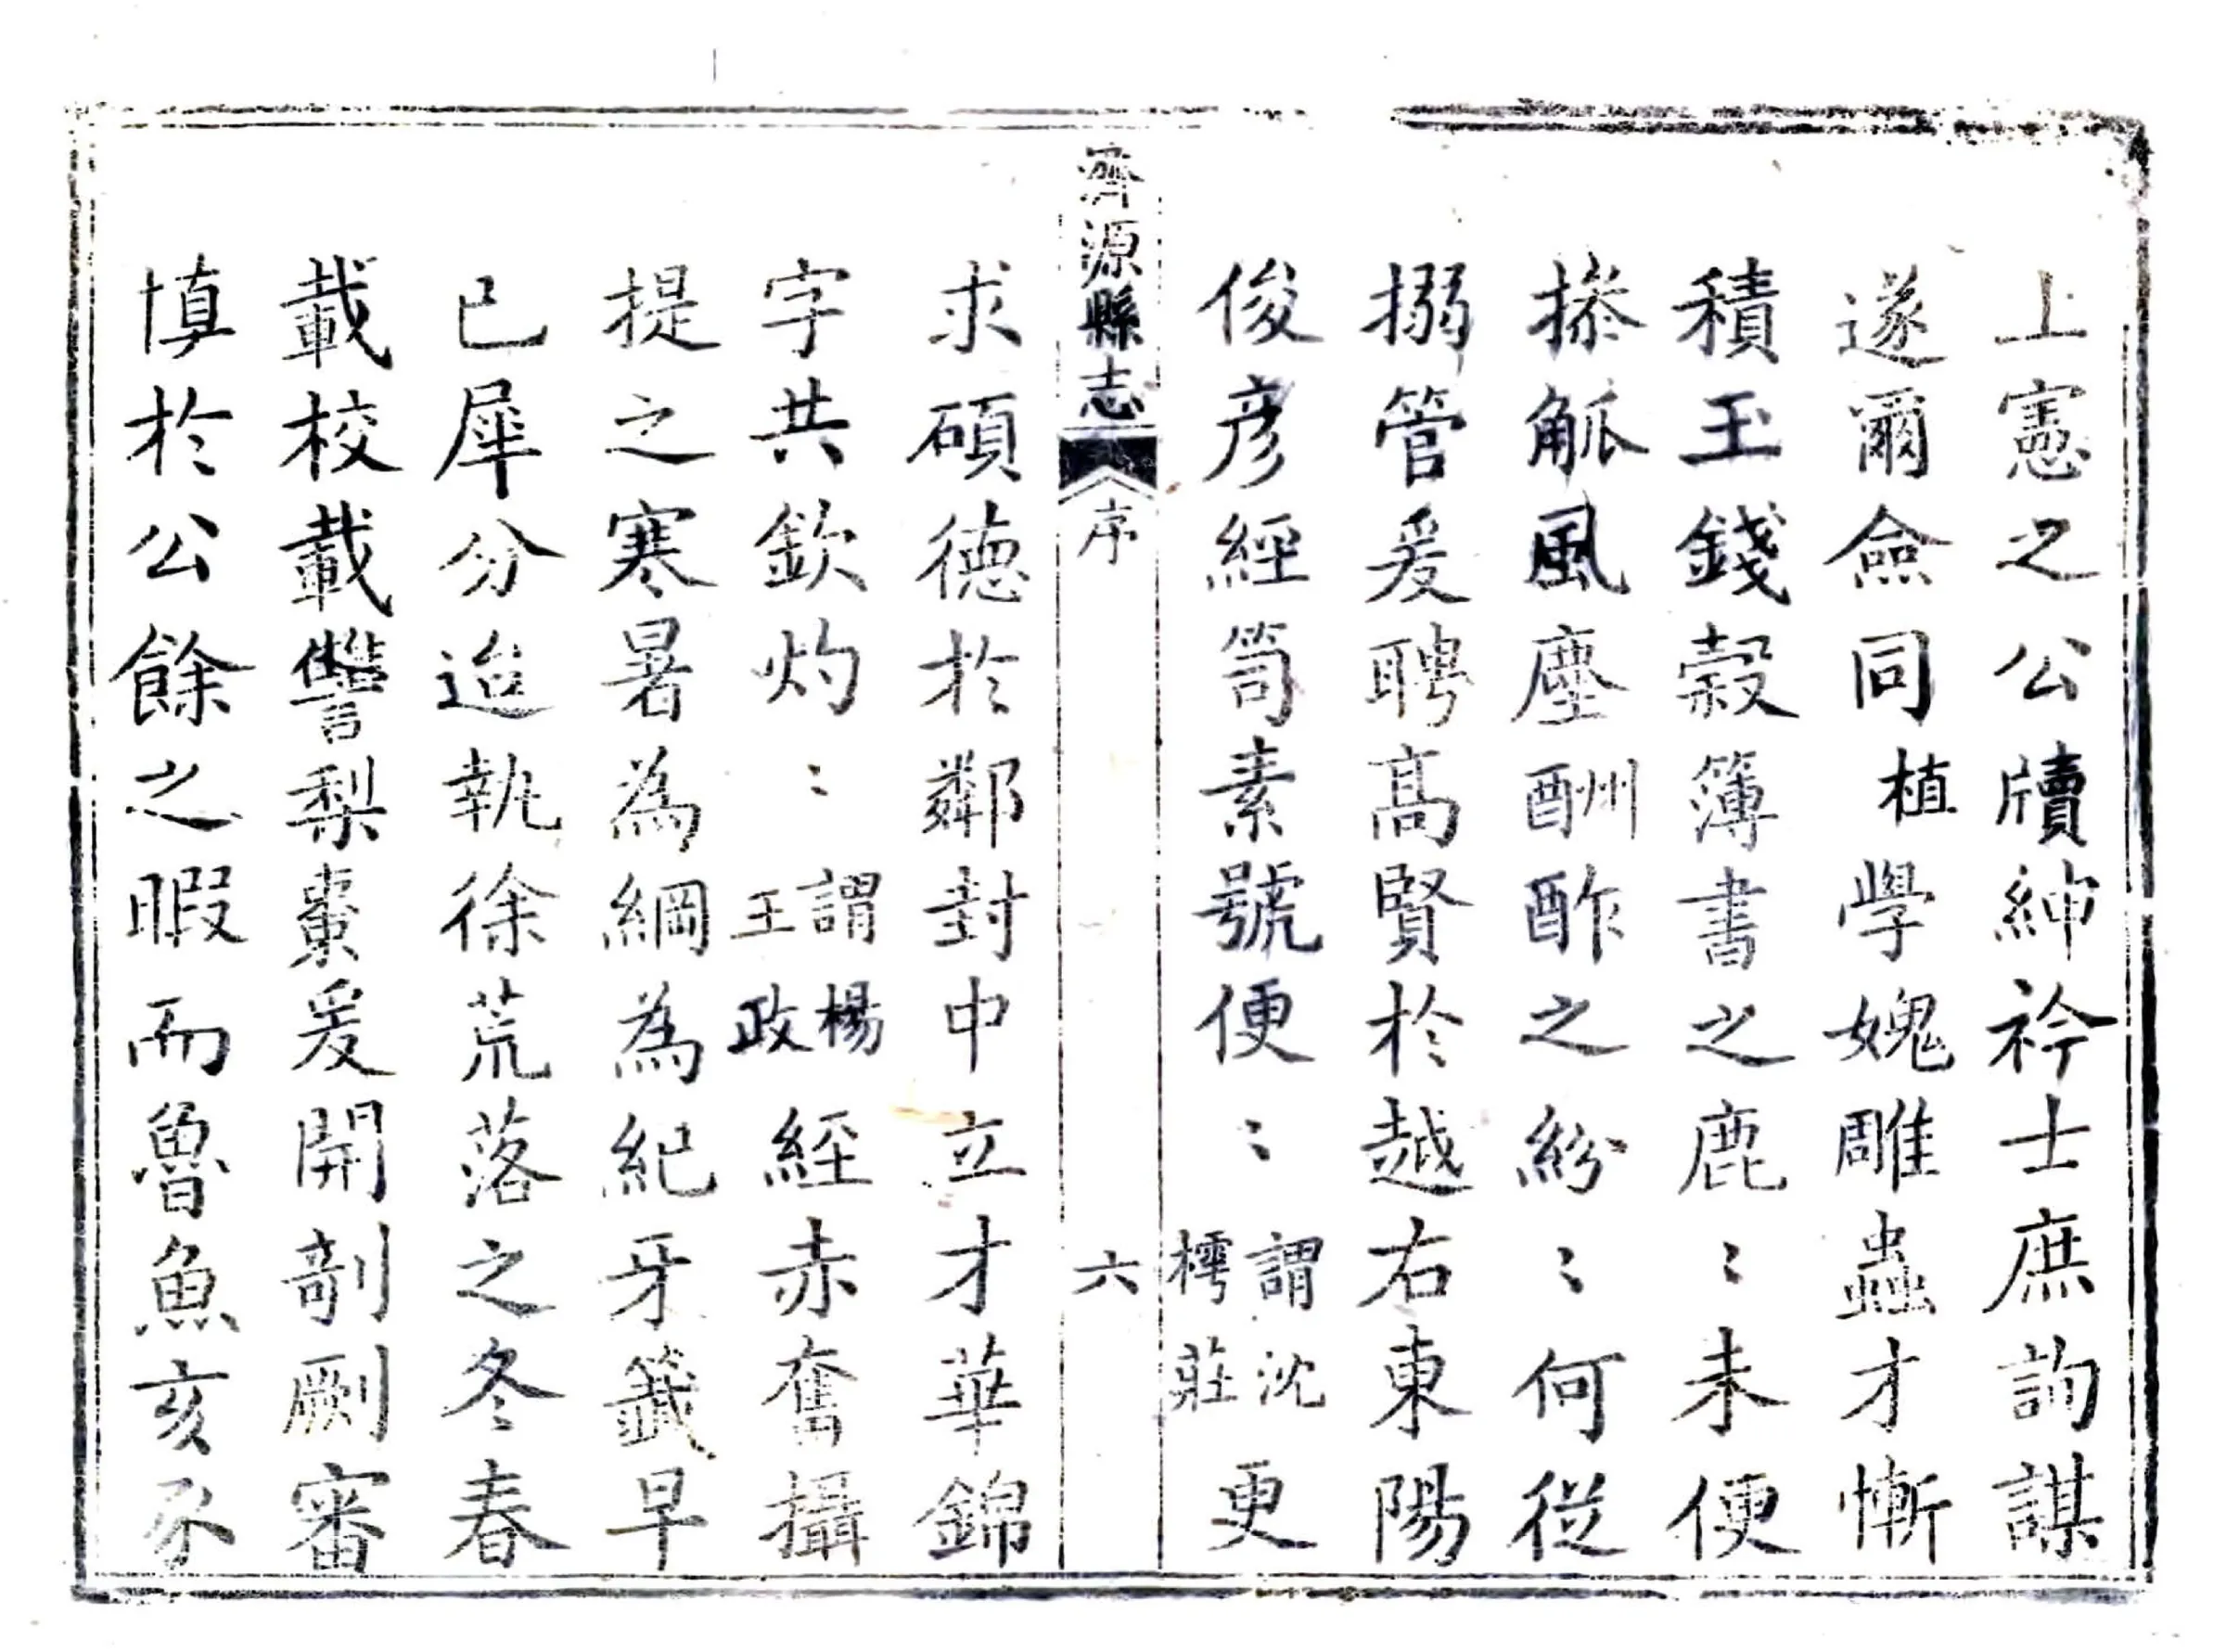 上憲之公牘紳衿士庶詢謀
遂爾僉同植學媿雕蟲才慚
積玉錢穀簿書之鹿〻未便
搽觚風塵酬酢之紛〻何從
搦管爰聘高賢於越右東陽
俊彥經笥素號便〻謂沈樗莊更
濟源縣志 序 六
求碩德於鄰封中立才華錦
字共欽灼〻謂楊王政經赤奮攝
提之寒暑為綱為紀牙籤早
已犀分迨執徐荒落之冬春
載校載讐梨棗爰開剞劂審
慎於公餘之暇而魯魚亥豕